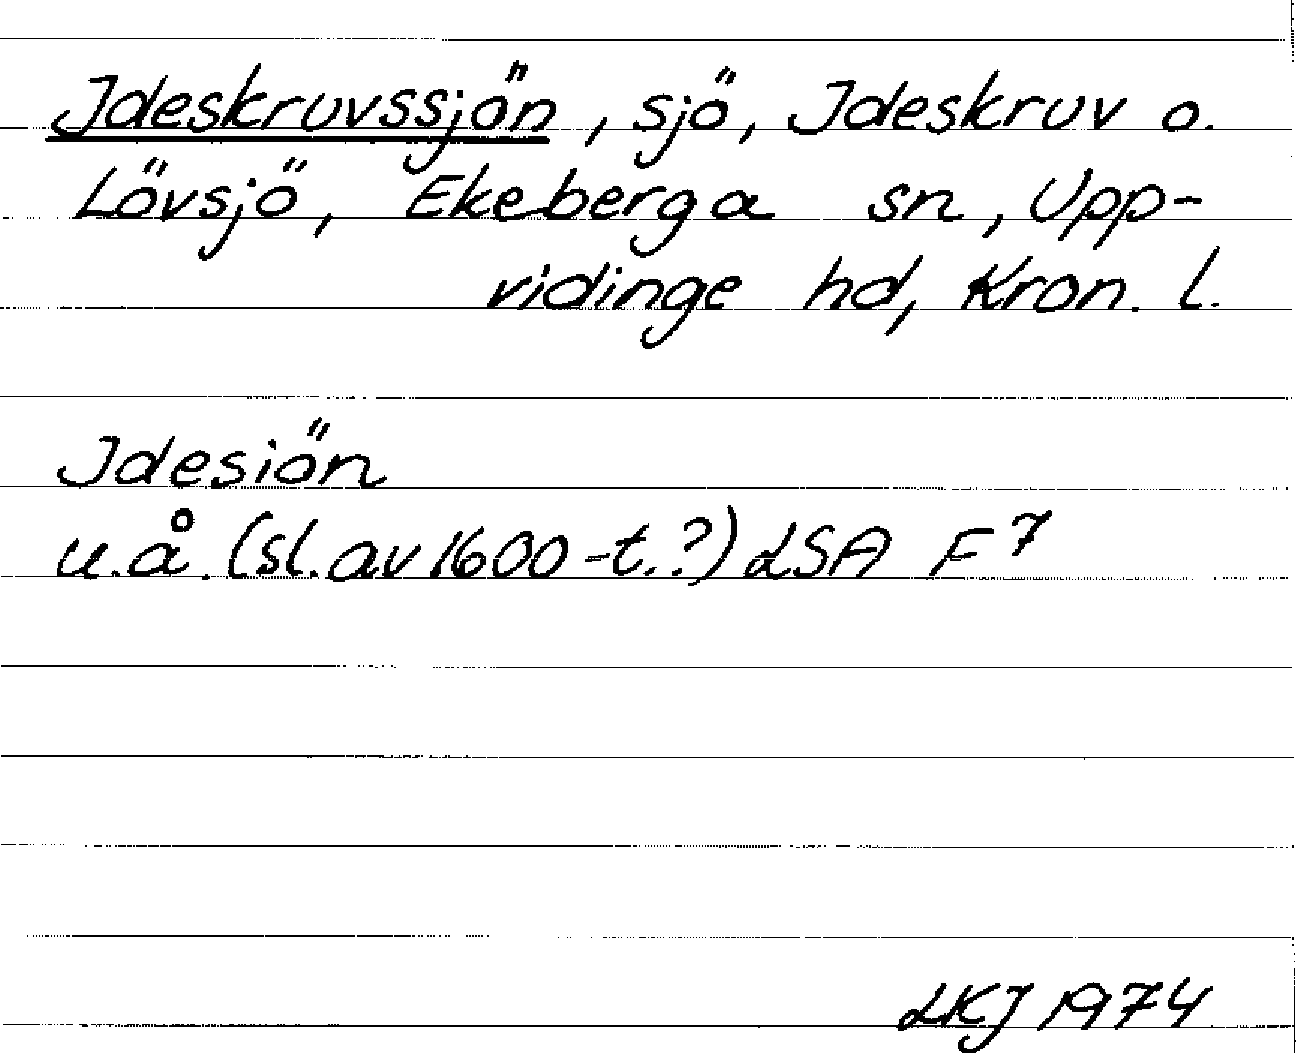 Ideskruvssjön, sjö, Ideskruv o.
Lövsjö, Ekeberga sn, Upp-
vidinge hd, Kron. l.
Idesiön
u.å. (sl. av 1600-t.?) LSA F7
LKJ 1974